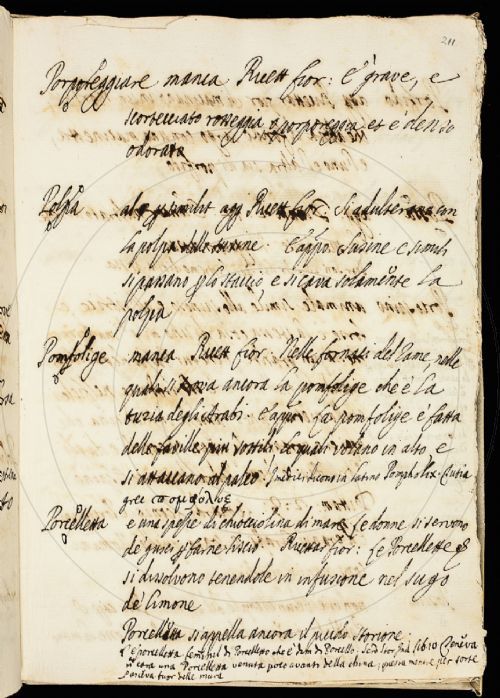 211
Porporeggiare manca Ricett fior: è grave, e
scortecciato rosseggia o porporeggia et è denso
odorata
Polpa al simil agg Ricett fior: Si adulterano con
la polpa delle susine. E appo. Susine e simili
si passano p lo staccio, e si cava solamente la
polpa
Pomfolige manca Ricett fior. Nelle fornaci del rame, nelle
quali si trova ancora la pomfolige che è la
tuzia degli Arabi. e appo: la pomfolige è fatta
delle faville più sottili le quali volano in alto, e
si attaccano al palco. Medici dicono in latino Pompholix. tutia
grec πομφολυξ
Porcelletta è una spezie di chiocciolina di mare le donne si servono
de gusci p farne liscio Ricettar fior: le Porcellette
si dissolvono tenendole in infusione nel sugo
de limone
Porcelletta si appella ancora il piccolo Storione
è porcelletta femina di Porcelletto che è dim. di Porcello. libro
era una Porcelletta venuta poco avanti della china, per sorte
fuor delle mura